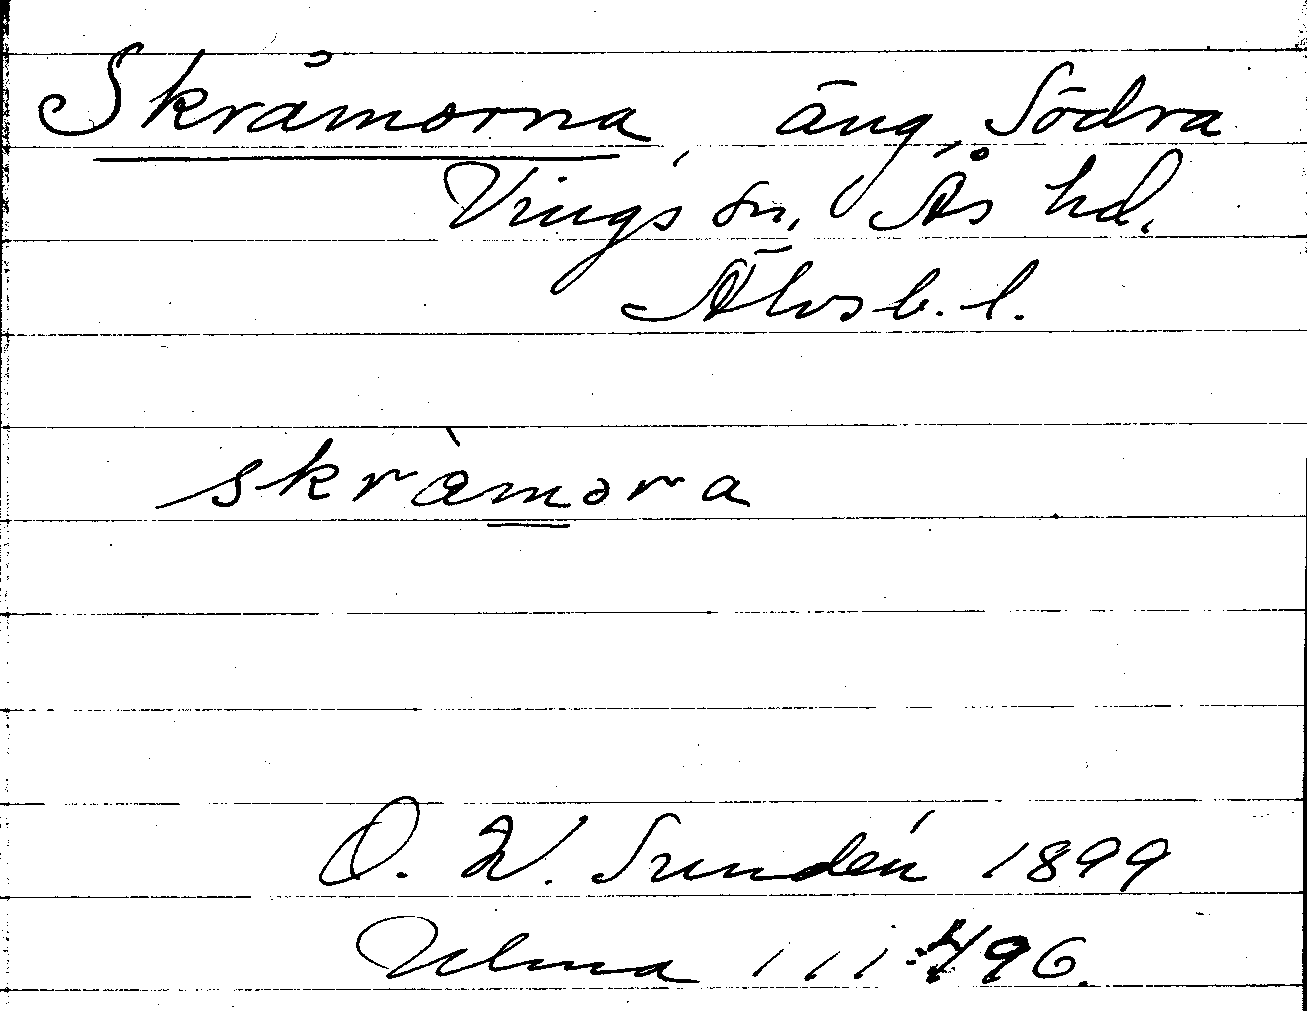 Skråmorna, äng, Södra
Vings sn, Ås hd.
Älvsb. l.
skràmora
O. W. Sundén 1899
Ulma 111:496.